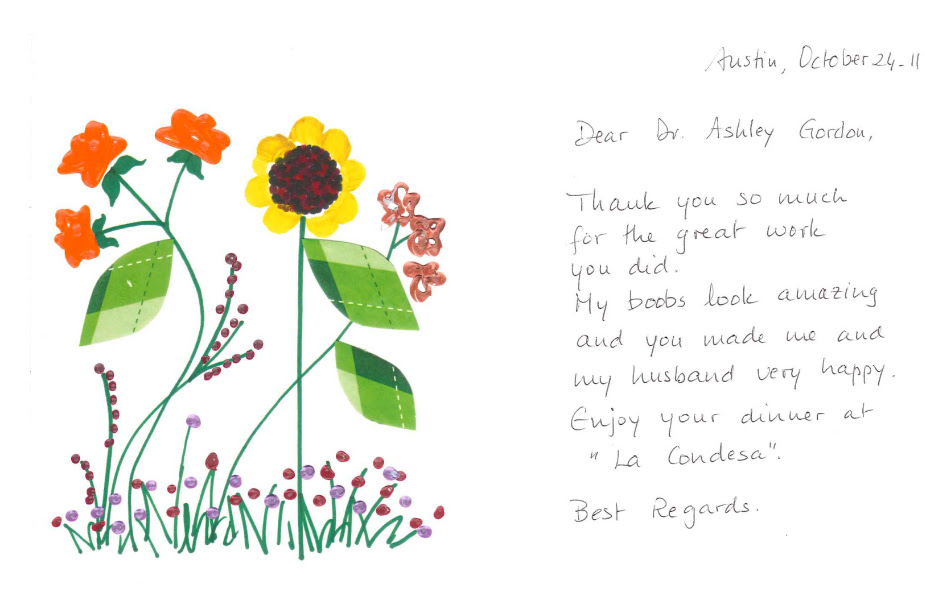 Austin, October 24-11
Dear Dr. Ashley Gordon,
Thank you so much
for the great work
you did.
My boobs look amazing
and you made me and
my husband very happy.
Enjoy your dinner at
"La Condesa".
Best Regards.